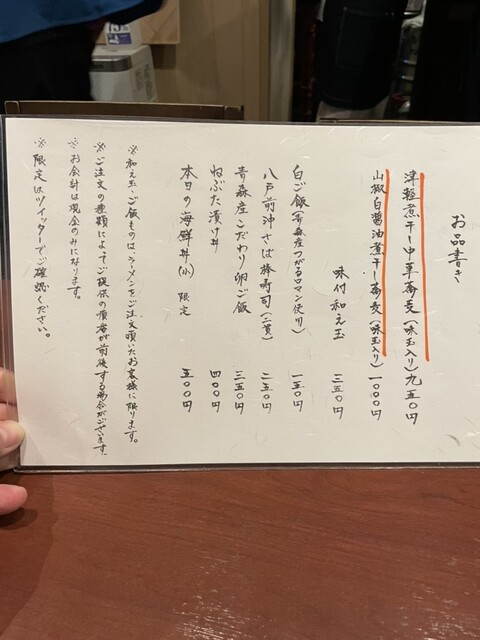 お品書き
津軽煮干し中華蕎麦(味玉入り)九五〇円
山椒白醤油煮干し蕎麦(味玉入り)一〇〇〇円
味付和え玉 二五〇円
白ご飯(青森産つがるロマン使用)一五〇円
八戸前沖さば棒寿司(二貫)二五〇円
青森産こだわり卵ご飯 三五〇円
ねぶた漬け丼 四〇〇円
本日の海鮮丼(小)限定 五〇〇円
※和え玉、ご飯ものは、ラーメンをご注文頂いたお客様に限ります。
※ご注文の種類によってご提供の順番が前後する場合がございます。
※お会計は現金のみになります。
※限定はツイッターでご確認ください。